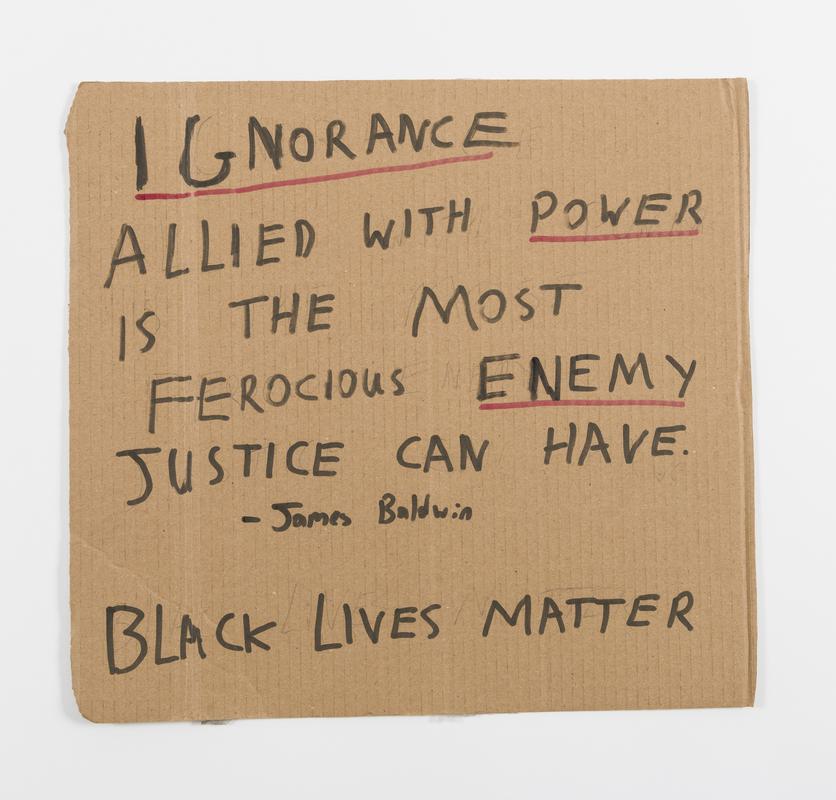 IGNORANCE
ALLIED WITH POWER
IS THE MOST
FEROCIOUS ENEMY
JUSTICE CAN HAVE.
- James Baldwin
BLACK LIVES MATTER